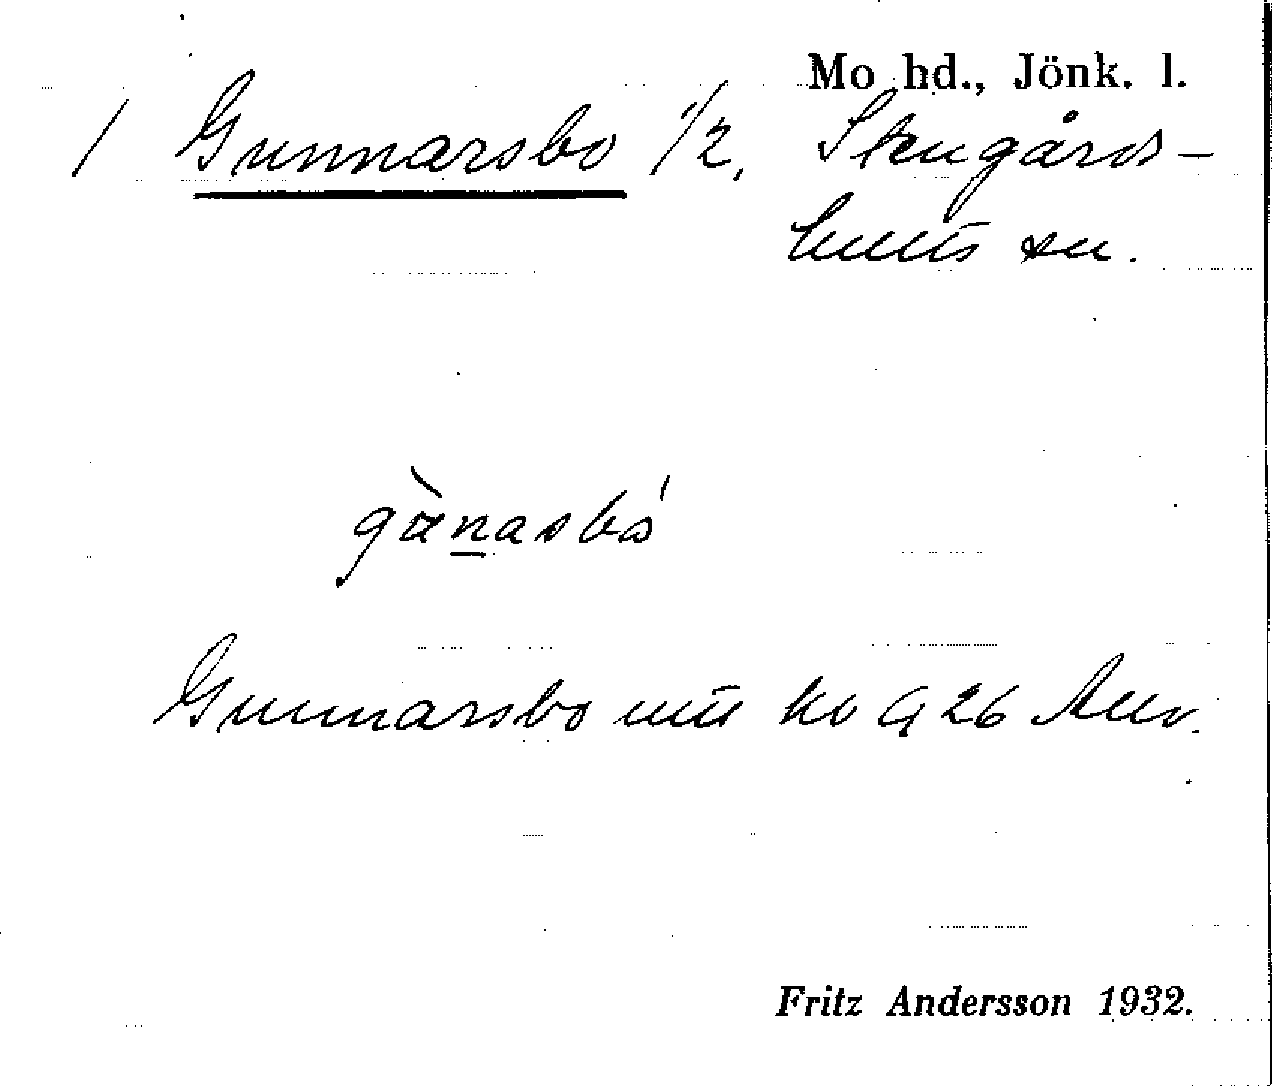 Mo hd., Jönk. l.
/ Gunnarsbo 1/2, Stengårds-
hults sn.
gànasbó
Gunnarsbo
Fritz Andersson 1932.